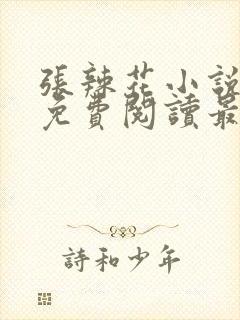 張辣花小說
免費閱讀最
詩和少年